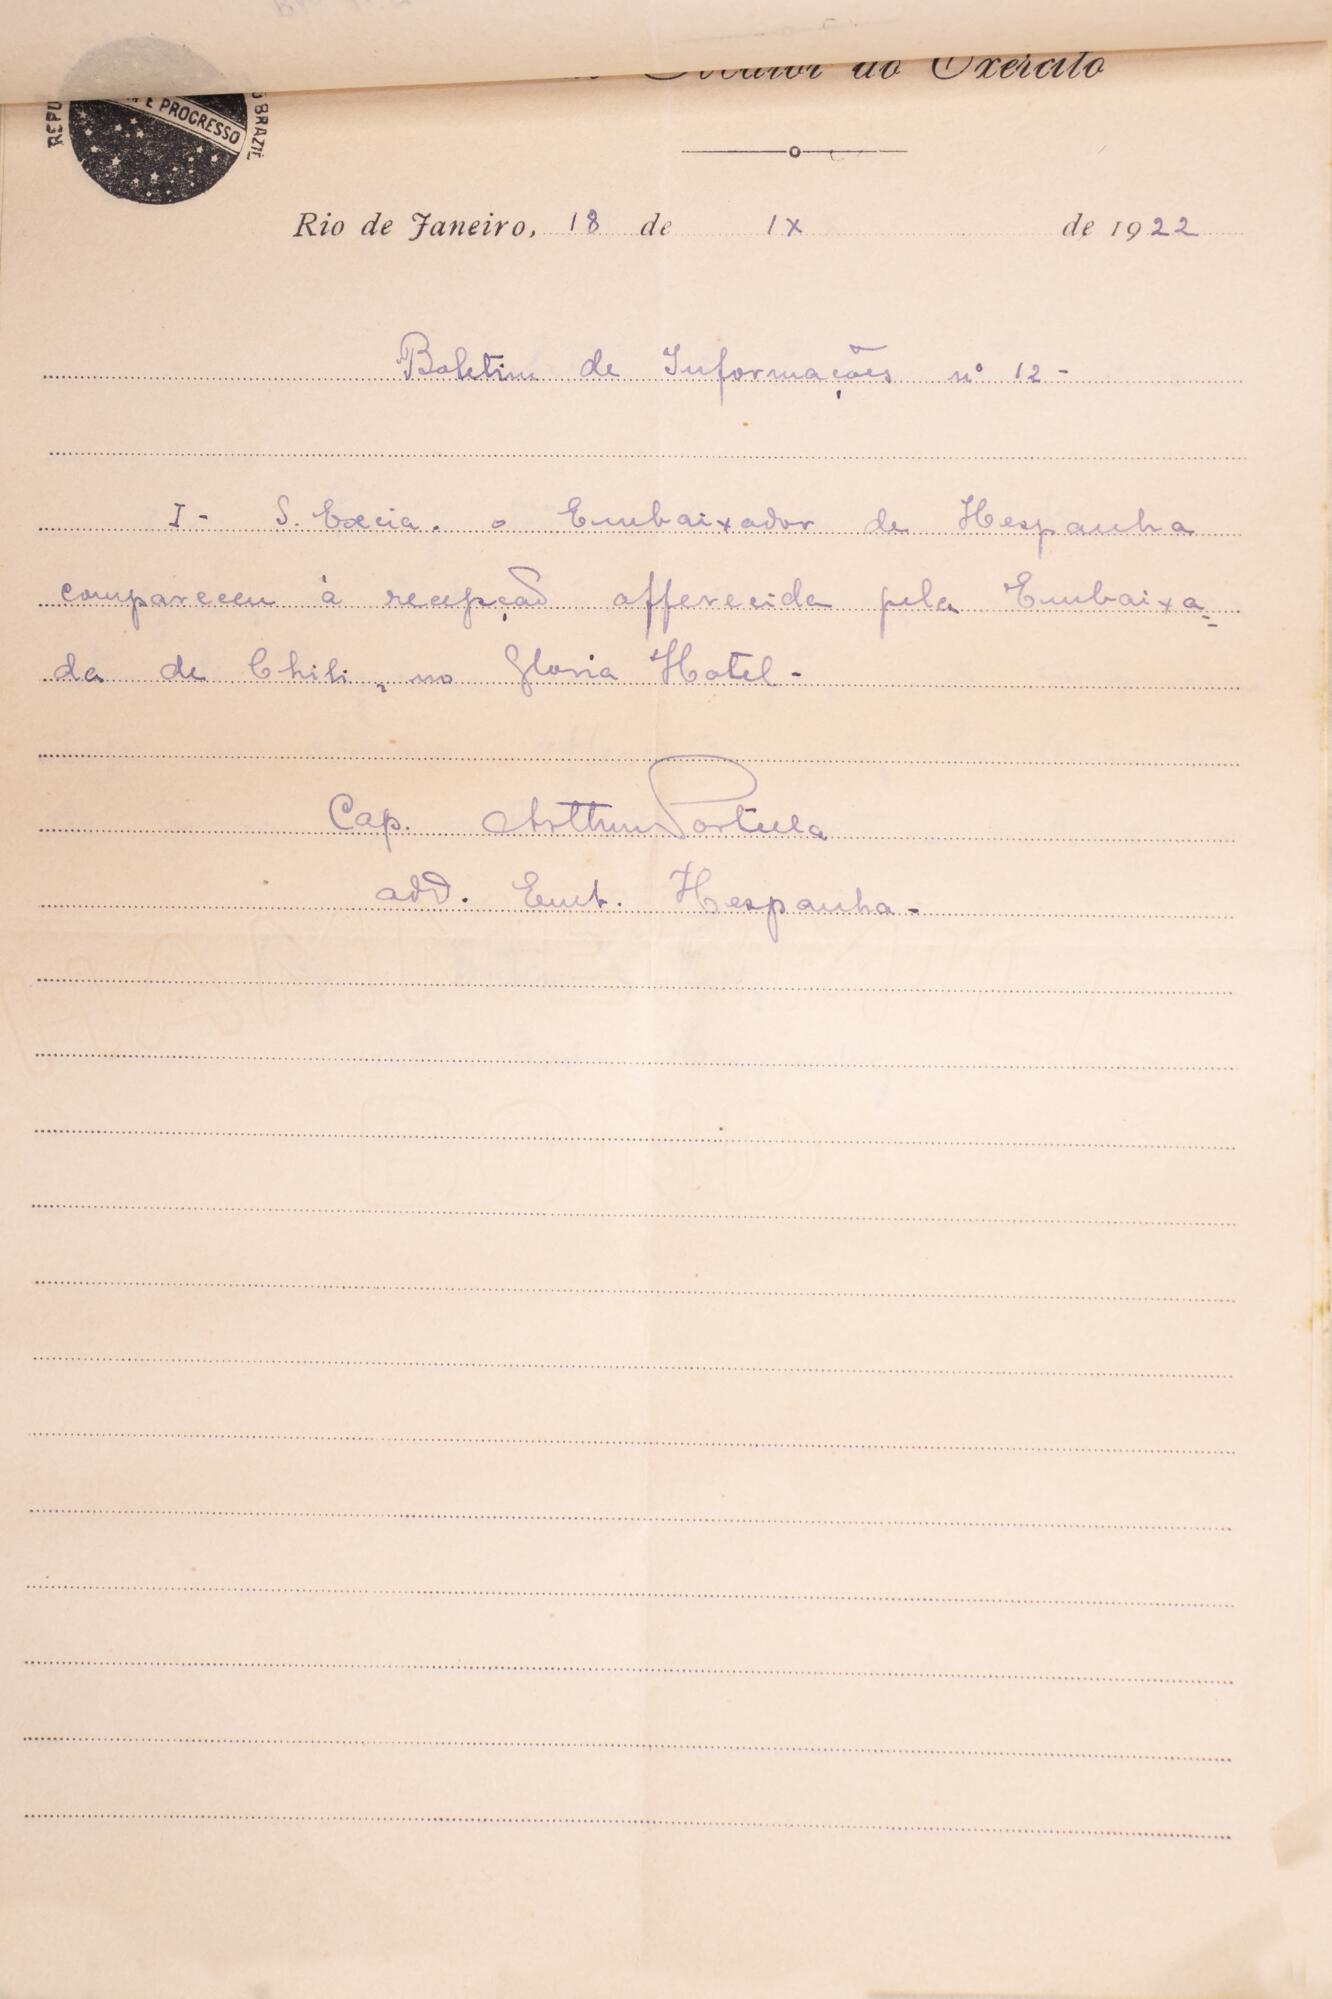 do Exército
E PROGRESSO
BRAZIL
Rio de Janeiro, 18 de IX de 1922
Boletim de Informações nº 12-
I- S. Excia. o Embaixador de Hespanha
compareceu à recepção offerecida pela Embaixa=
da de Chili, no Gloria Hotel-
Cap. Arthur Portella
add. Emb. Hespanha-